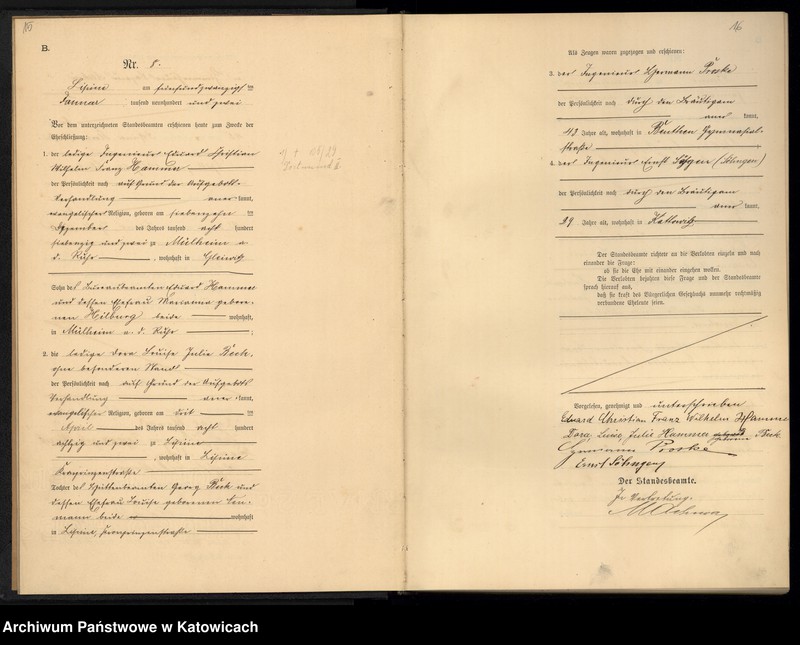 B.
Nr. 8.
Lipine am fünfundzwanzigsten
Januar tausend neunhundert und zwei
Vor dem unterzeichneten Standesbeamten erschienen heute zum Zwecke der
Eheschließung:
1. der ledige Ingenieur Eduard Christian
Wilhelm Franz Hammer
der Persönlichkeit nach auf Grund der Aufgebots-
verhandlung anerkannt,
evangelischer Religion, geboren am siebenzehnten
Dezember des Jahres tausend acht hundert
siebenzig und zwei zu Mülheim a.
d. Ruhr, wohnhaft in Gleiwitz
Sohn des Eduard Hammer
und dessen Ehefrau Marianna gebore-
nen Hilburg beide wohnhaft
in Mülheim a. d. Ruhr;
2. die ledige Dora Louise Julie Beck,
ohne besonderen Stand
der Persönlichkeit nach auf Grund der Aufgebots-
verhandlung anerkannt,
evangelischer Religion, geboren am dritten
April des Jahres tausend acht hundert
achtzig und zwei zu Lipine
, wohnhaft in Lipine
Kronprinzenstraße
Tochter des Hüttenbeamten Georg Beck und
dessen Ehefrau Louise geborenen
beide wohnhaft
in Lipine, Kronprinzenstraße
16
Als Zeugen waren zugezogen und erschienen:
3. der Ingenieur Hermann Proske
der Persönlichkeit nach durch den Bräutigam
anerkannt,
43 Jahre alt, wohnhaft in Beuthen Gymnasial-
straße
4. der Ingenieur Ernst (Solingen)
der Persönlichkeit nach durch den Bräutigam
anerkannt,
29 Jahre alt, wohnhaft in Kattowitz
Der Standesbeamte richtete an die Verlobten einzeln und nach
einander die Frage:
ob sie die Ehe mit einander eingehen wollen.
Die Verlobten bejahten diese Frage und der Standesbeamte
sprach hierauf aus,
daß sie kraft des Bürgerlichen Gesetzbuchs nunmehr rechtmäßig
verbundene Eheleute seien.
Vorgelesen, genehmigt und unterschrieben
Eduard Christian Franz Wilhelm Hammer
Dora, Luise, Julie Hammer geborene Beck
Hermann Proske
Ernst Solingen
Der Standesbeamte.
In Vertretung.
Archiwum Państwowe w Katowicach